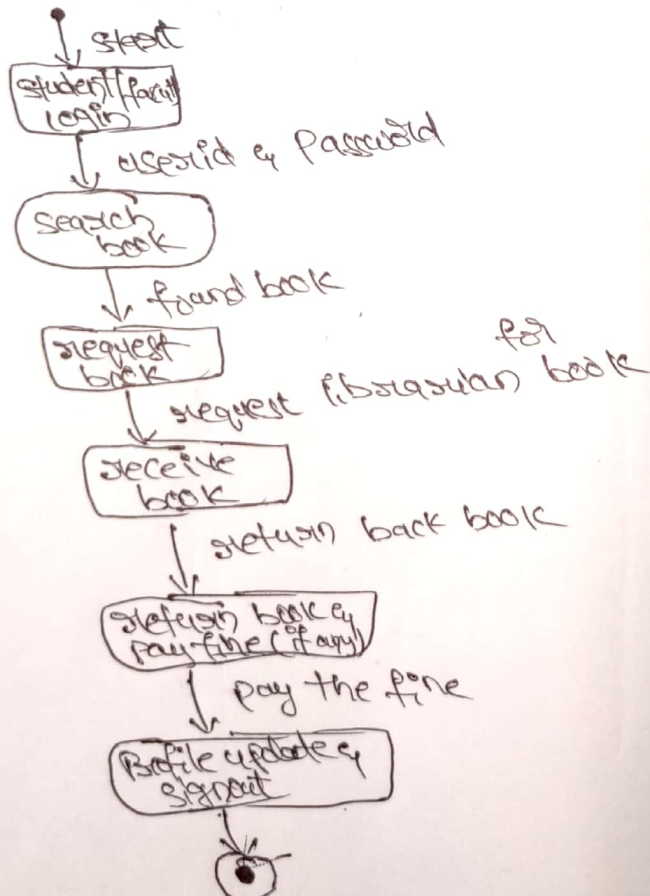 start
student/facult
login
userid & Password
search
book
found book
request
book
for
request librarian book
receive
book
return back book
return book &
pay fine (if any)
pay the fine
Profile update &
signout